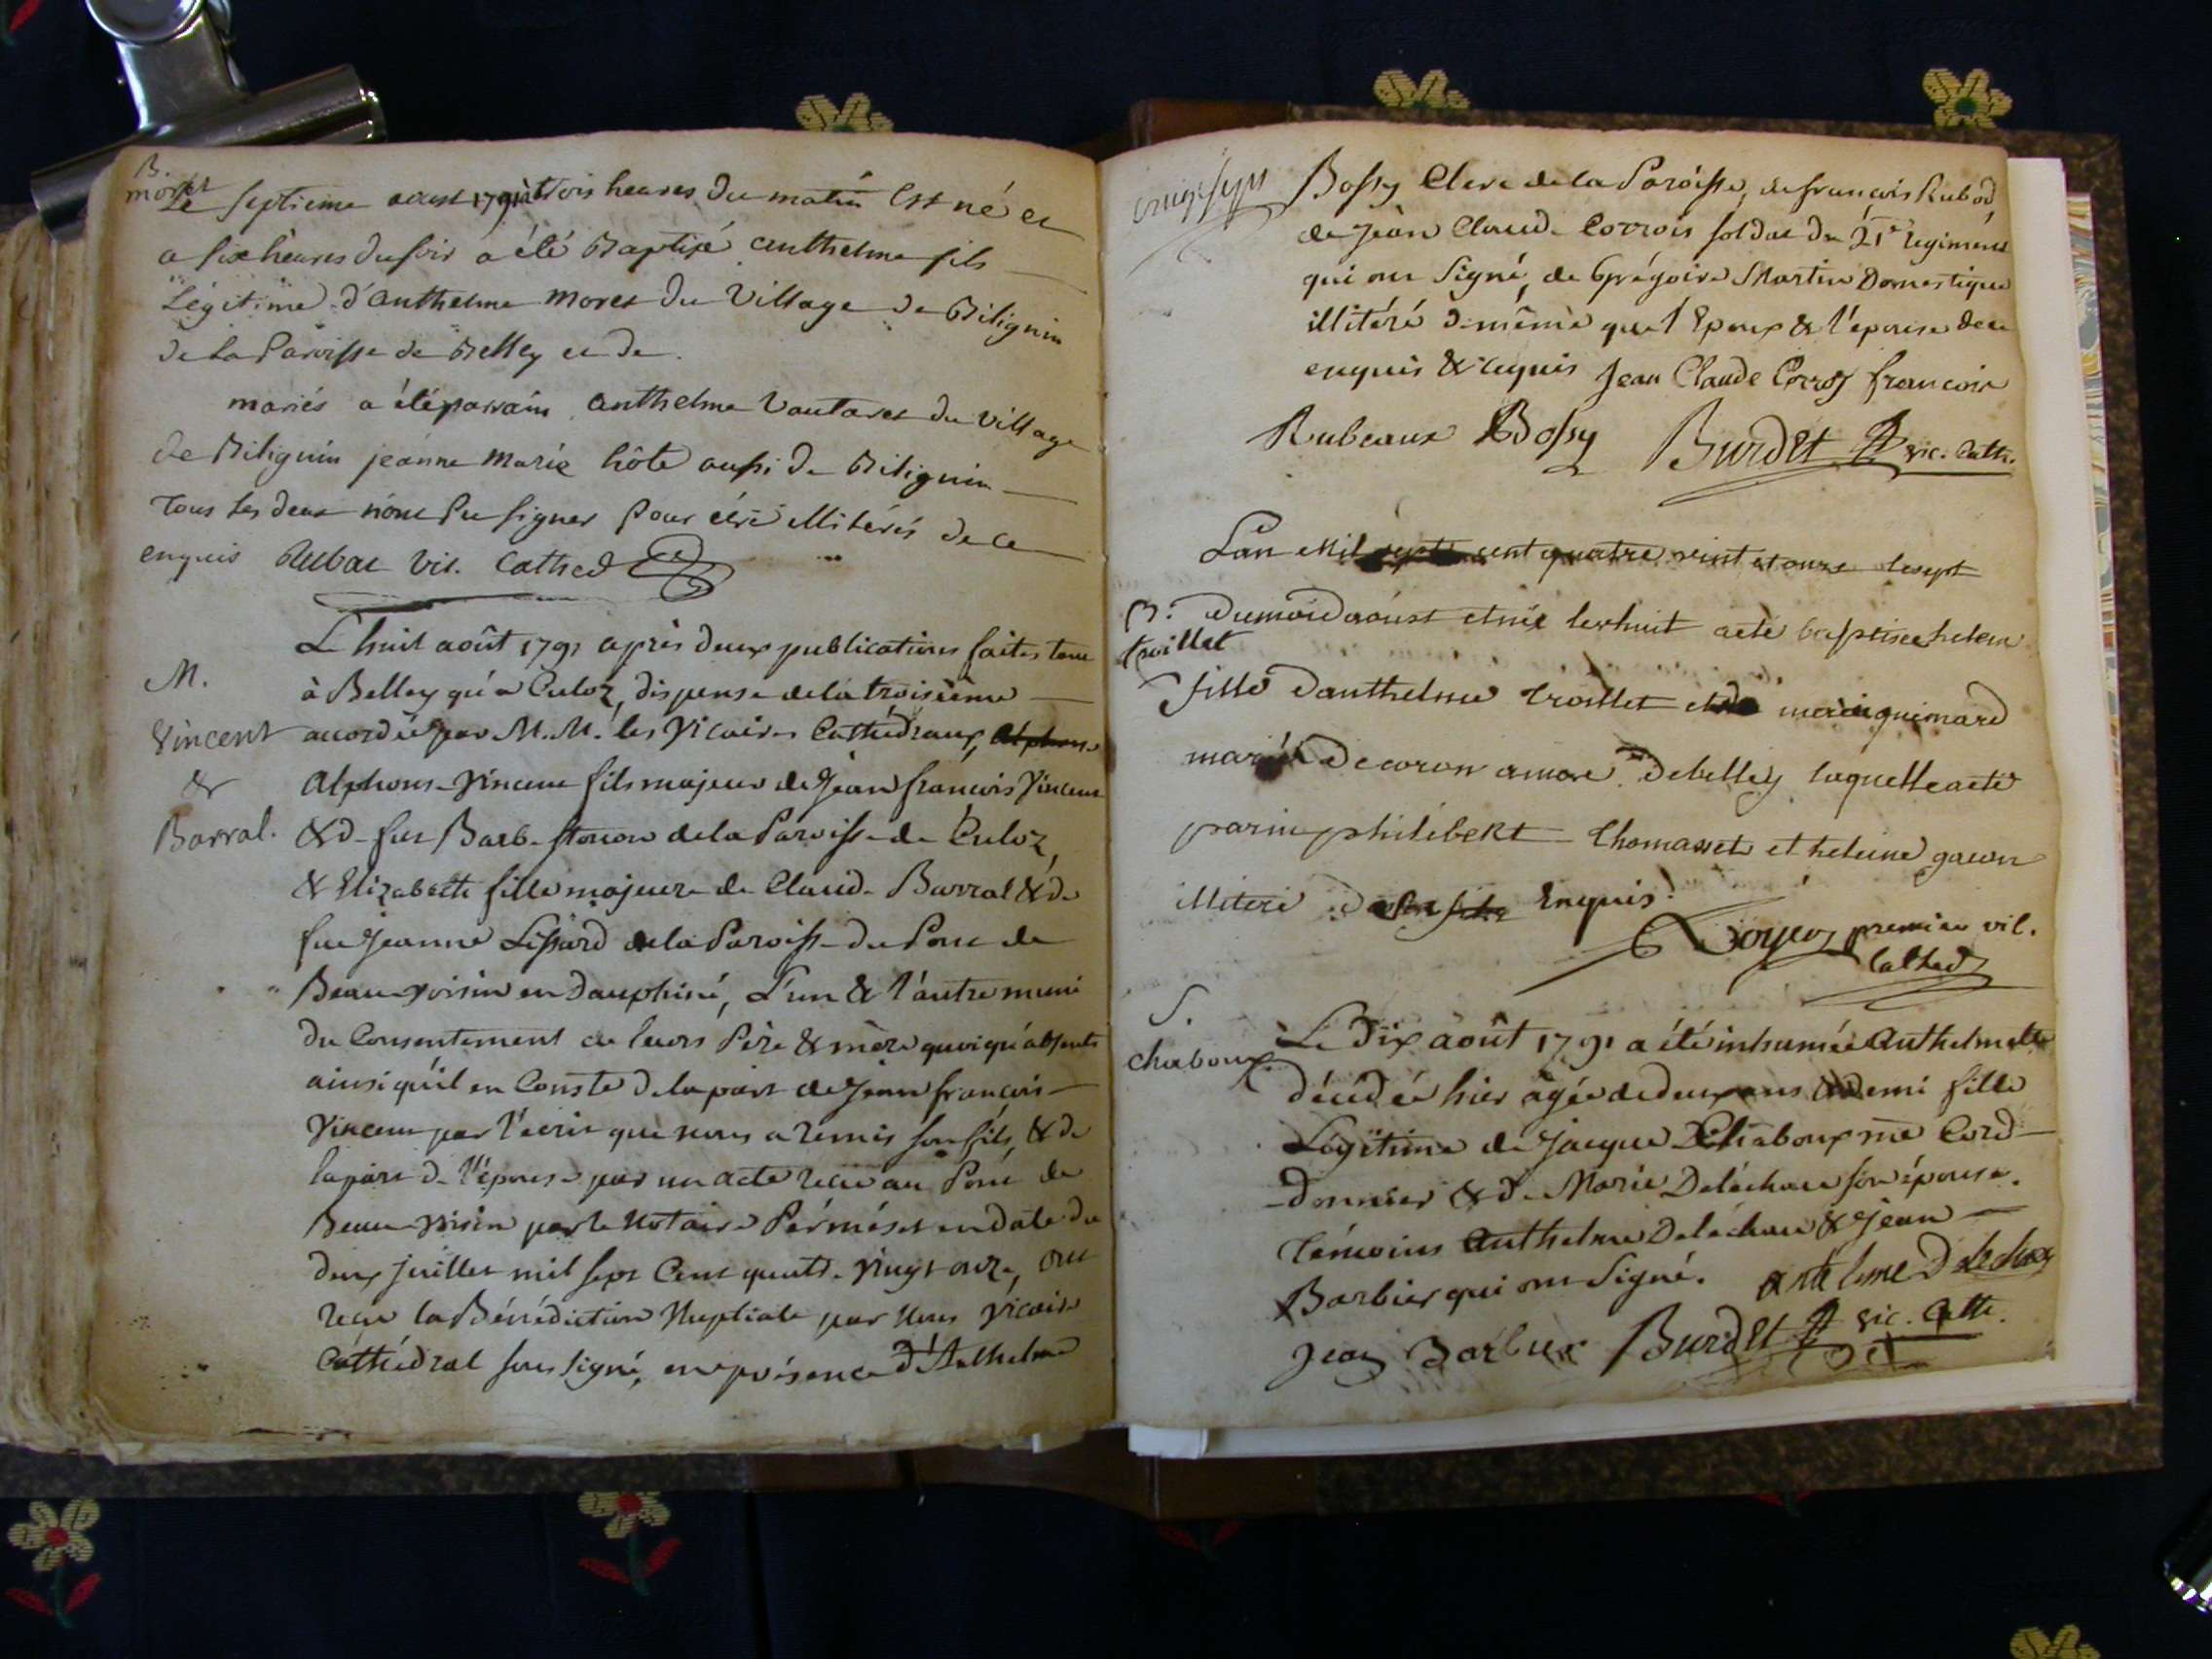 B.
moret
Le septieme aout 1791 à trois heures du matin Est né et
a six heures du soir a été Baptisé anthelme fils
Légitime d'anthelme moret du Village de Bilignin
de la Paroisse de Belley et de
mariés a été parrain anthelme Vautaret du village
de Bilignin jeanne Marie hôte aussi de Bilignin
tous les deux n'ont pu signer pour être illitérés de ce
enquis Rubat vic. Cathed
M.
Vincent
&
Barral.
L'huit août 1791 après deux publications faites tant
à Belley qu'a Culoz, dispense de la troisième
accordée par M.M. les Vicaires Cathédraux, Alphons
Alphons Vincent fils majeur de Jean francois Vincent
& de feu Barbe de la Paroisse de Culoz,
& Elizabeth fille majeure de Claude Barral & de
fue Jeanne Lissard de la Paroisse du Pont de
Beauvoisin en Dauphiné, L'un & l'autre muni
du Consentement de leurs Père & mère quoiqu'absents
ainsi qu'il en Conste de la part de Jean francois
Vincent par l'écrit que nous a remis son fils, & de
la part de l'épouse par un acte recu au Pont de
Beauvoisin par le Notaire en date du
deux Juillet mil sept Cent quatre Vingt onze, ont
recu la Bénédiction Nuptiale par Nous Vicaire
Cathédral soussigné, en présence d'Anthelme
Bossy Clerc de la Paroisse, de francois Rubod,
de Jean Claude Corrois soldat du 21e regiment
qui ont Signé, de Grégoire Martin Domestique
illitéré de même que l'Epoux & l'épouse de ce
enquis & requis Jean Claude Corroy francois
Rubeaux Bossy Burdet vic. Cath.
B:
troillet
Lan mil sept cent quatre veint et onze le sept
du moi daoust et née le huit aété baptisee helene
fille danthelme troillet et de marie guimard
mariés de coron amore debelley laquelle aeté
parin philibekt Thomasset et heleine
illiteré de Enquis.
premier vic.
Cathed
S.
chaboux
Le Dix août 1791 a été inhumée Anthelmette
décédée hier agée de deux ans & demi fille
Légitime de Jacque Chaboux me Cord-
-donnier & de Marie Deléchaux son épouse.
Témoins Anthelme Deléchaux & Jean
Barbier qui ont Signé. antelme Delechaux
Jean Barbier Burdet vic. Cath.